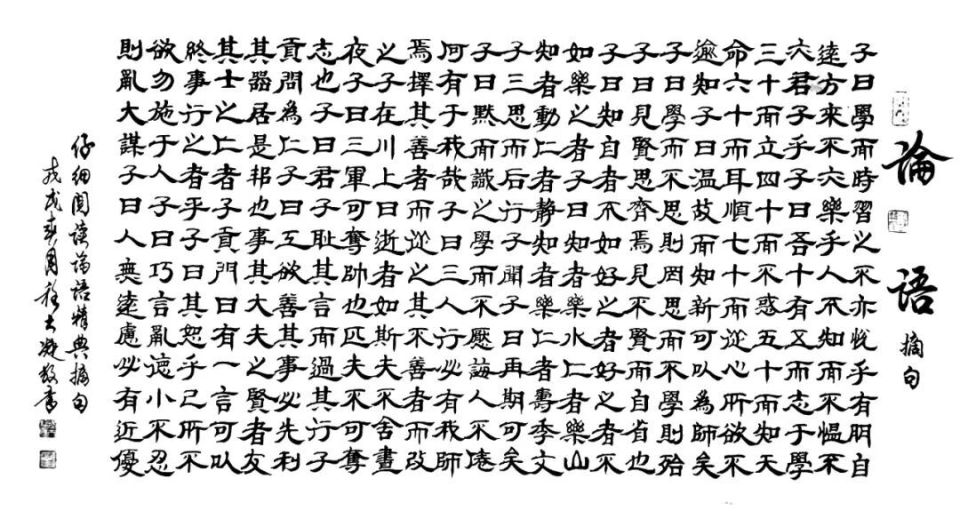 論語
摘句
子曰學而時習之不亦悅乎有朋自
遠方來不亦樂乎人不知而不愠不
亦君子乎子曰吾十有五而志于學
三十而立四十而不惑五十而知天
命六十而耳順七十而從心所欲不
逾知子曰温故而知新可以為師矣
子曰學而不思則罔思而不學則殆
子曰見賢思齊焉見不賢而自省也
子曰知自者不如好之者好之者不
如樂之者子曰知者樂水仁者樂山
知者動仁者静知者樂仁者壽季文
子三思而后行子聞子曰再期可矣
子曰默而識之學而不厭誨人不倦
何有于我哉子曰三人行必有我師
焉擇其善者而從之其不善者而改
之子在川上曰逝者如斯夫不舍晝
夜子曰三軍可奪帥也匹夫不可奪
志也子曰君子耻其言而過其行子
貢問為仁子曰工欲善其事必先利
其器居是邦也事其大夫之賢者友
其士之仁者子貢門曰有一言可以
終事行之者乎子曰其恕乎己所不
欲勿施于人子曰巧言亂德小不忍
則亂大謀子曰人無遠慮必有近優
仔細閱读論語精典摘句
戊戌春月程士凝敬書